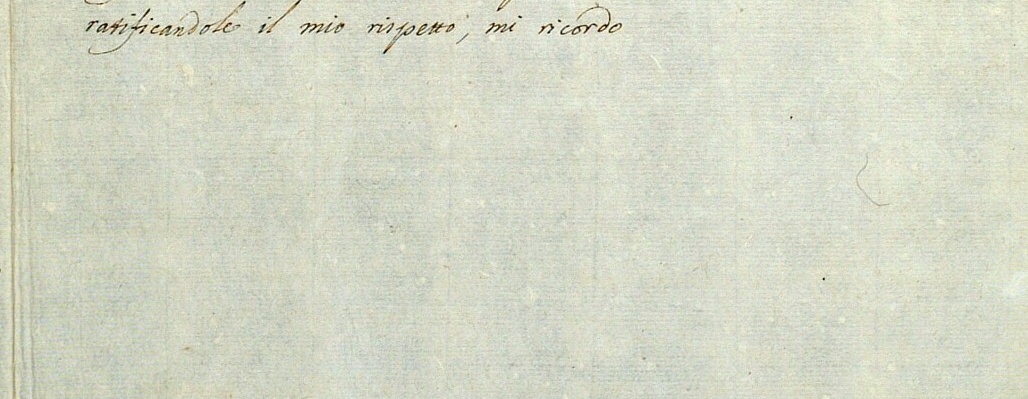 ratificandole il mio rispetto, mi ricordo